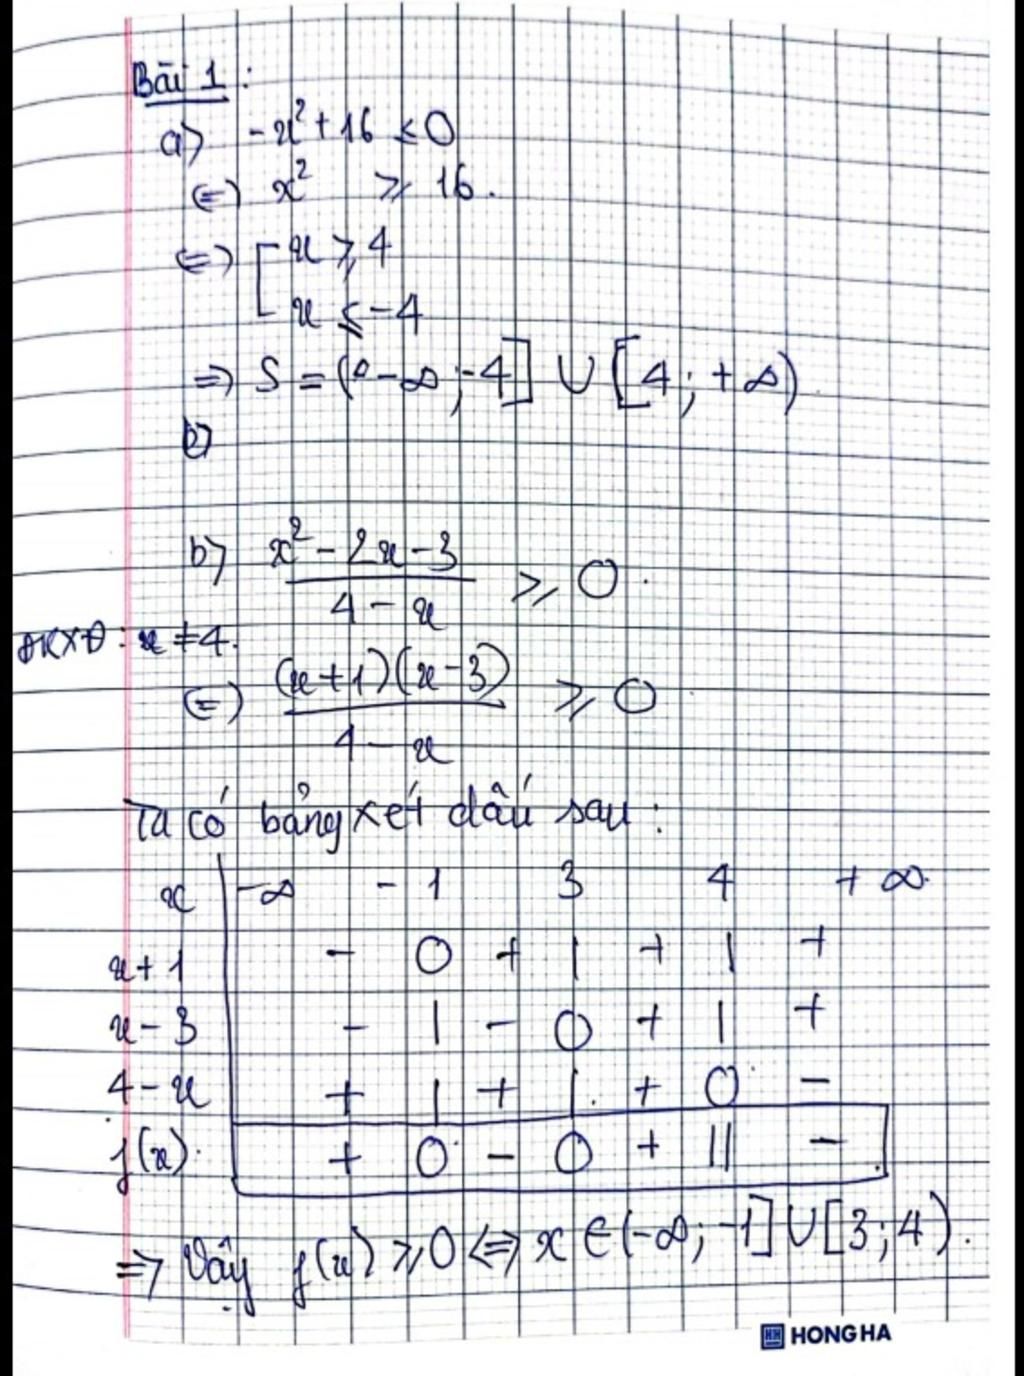 Bài 1:
a) -x² + 16 ≤ 0
⇔ x² ≥ 16.
⇔ [ x ≥ 4
x ≤ -4
⇒ S = (-∞; -4] ∪ [4; +∞)
b)
b) (x² - 2x - 3) / (4 - x) ≥ 0.
ĐKXĐ: x ≠ 4.
⇔ ((x+1)(x-3)) / (4 - x) ≥ 0
Ta có bảng xét dấu sau:
x | -∞ -1 3 4 +∞
x+1 | - 0 + | + | +
x-3 | - | - 0 + | +
4-x | + | + | + 0 -
f(x) | + 0 - 0 + || -
⇒ Vậy f(x) ≥ 0 ⇔ x ∈ (-∞; -1] ∪ [3; 4).
HH HONG HA